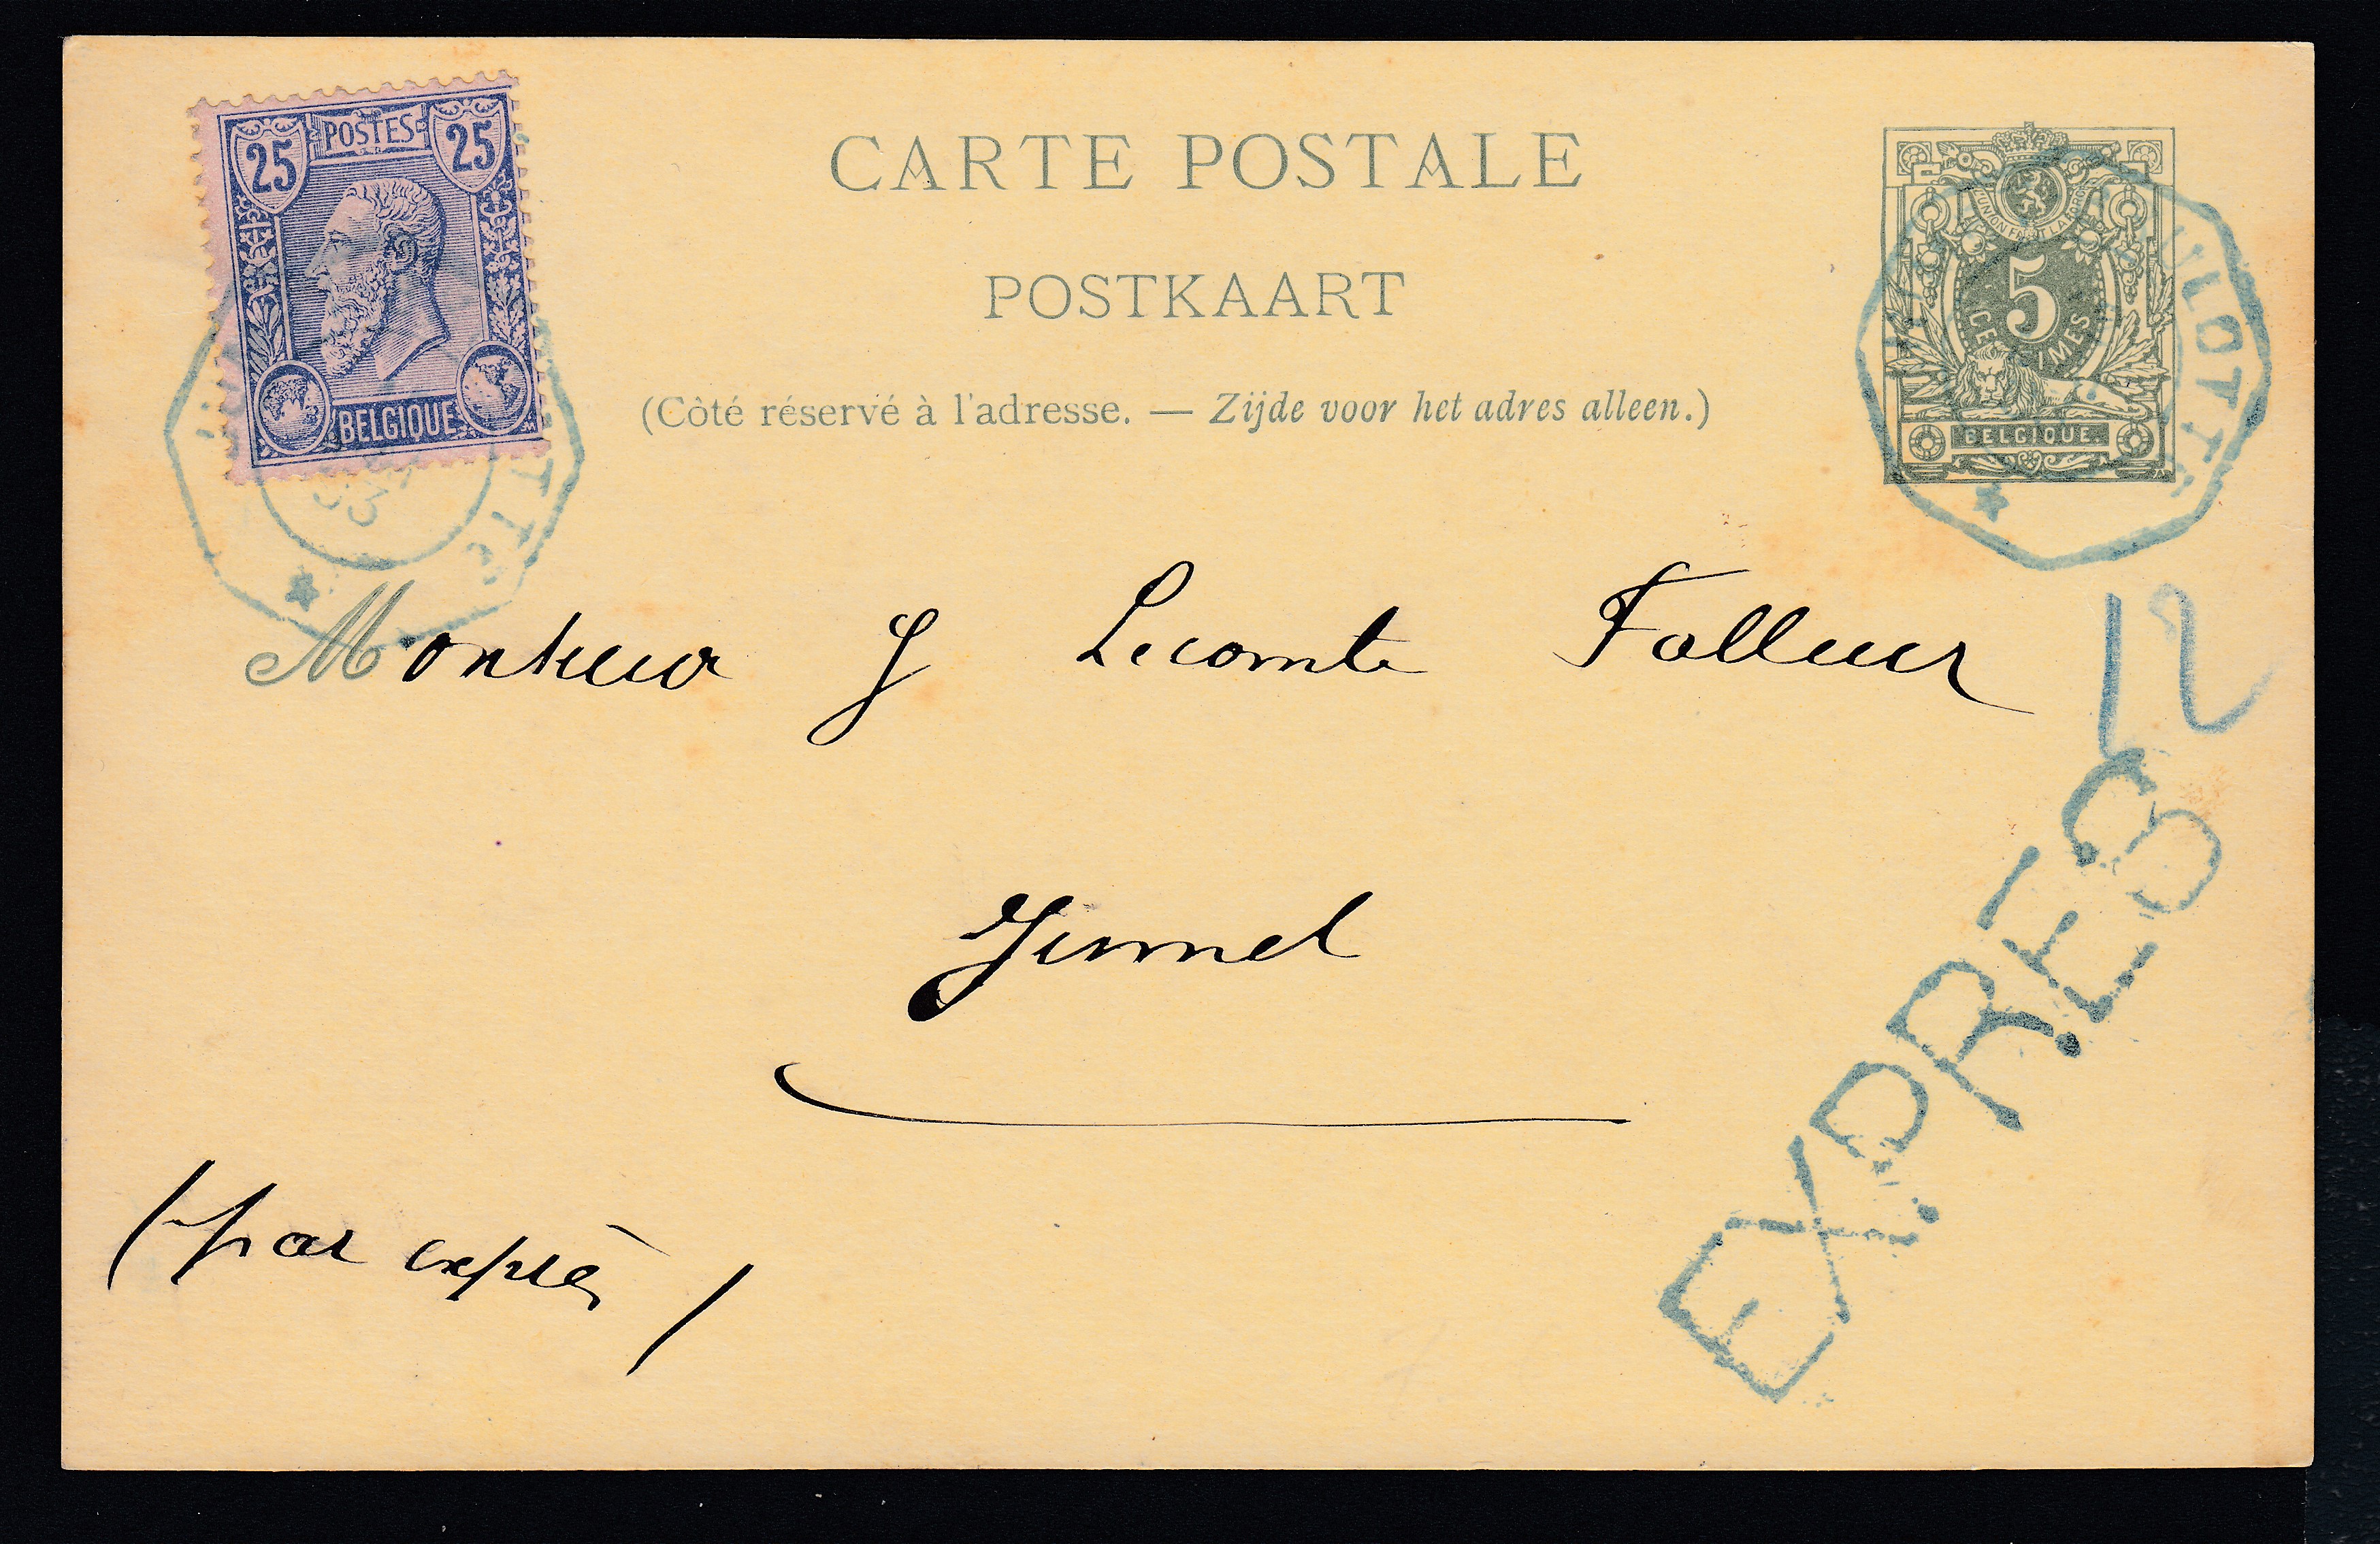 25 POSTES 25
BELGIQUE
CARTE POSTALE
POSTKAART
(Côté réservé à l'adresse. — Zijde voor het adres alleen.)
L'UNION FAIT LA FORCE
5
CENTIMES
BELGIQUE
93
Monsieur J Lecomte Falleur
Jumet
(par exprès)
EXPRES
12